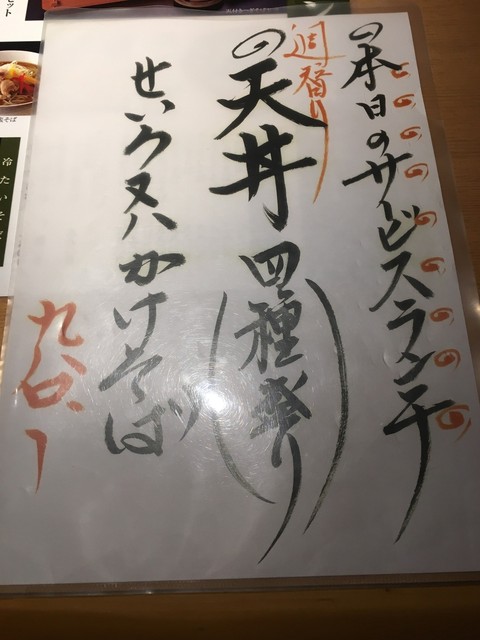 本日のサービスランチ
週替り
天丼(四種盛り)
せいろ又ハかけそば
九八〇、ー
冷たいそ